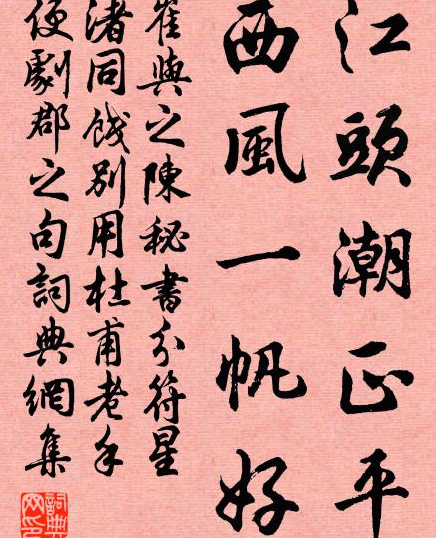 江頭潮正平
西風一帆好
崔與之陳秘書分符星
渚同餞別用杜甫老手
便劇郡之句詞典網集
詞典網印